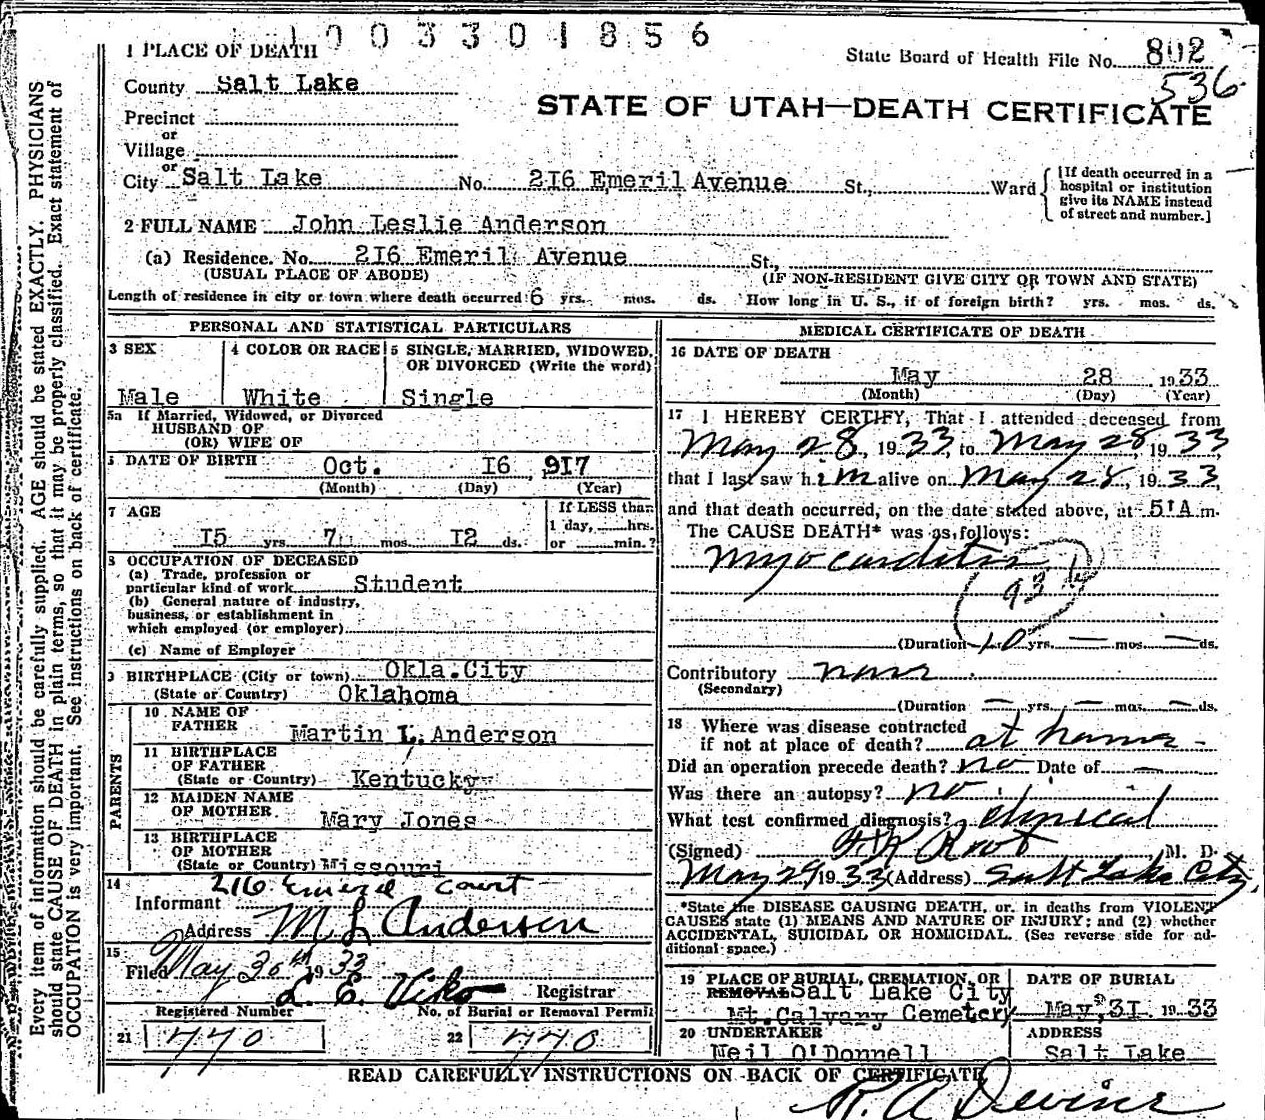 1003301856
1 PLACE OF DEATH
State Board of Health File No. 802
536
County Salt Lake
STATE OF UTAH—DEATH CERTIFICATE
Precinct
or
Village
or
City Salt Lake No. 216 Emeril Avenue St., Ward
[If death occurred in a
hospital or institution
give its NAME instead
of street and number.]
2 FULL NAME John Leslie Anderson
(a) Residence. No. 216 Emeril Avenue St.,
(USUAL PLACE OF ABODE) (IF NON-RESIDENT GIVE CITY OR TOWN AND STATE)
Length of residence in city or town where death occurred 6 yrs. mos. ds. How long in U. S., if of foreign birth? yrs. mos. ds.
PERSONAL AND STATISTICAL PARTICULARS
3 SEX
Male
4 COLOR OR RACE
White
5 SINGLE, MARRIED, WIDOWED,
OR DIVORCED (Write the word)
Single
5a If Married, Widowed, or Divorced
HUSBAND OF
(OR) WIFE OF
DATE OF BIRTH Oct. 16 917
(Month) (Day) (Year)
7 AGE
15 yrs. 7 mos. 12 ds.
If LESS than
1 day, hrs.
or min.?
OCCUPATION OF DECEASED
(a) Trade, profession or
particular kind of work Student
(b) General nature of industry,
business, or establishment in
which employed (or employer)
(c) Name of Employer
BIRTHPLACE (City or town) Okla.City
(State or Country) Oklahoma
PARENTS
10 NAME OF
FATHER Martin L. Anderson
11 BIRTHPLACE
OF FATHER
(State or Country) Kentucky
12 MAIDEN NAME
OF MOTHER Mary Jones
13 BIRTHPLACE
OF MOTHER
(State or Country) Missouri
14 216 Emeril Court
Informant
Address M L Anderson
15
Filed May 30th 1933
L. E. Viko Registrar
Registered Number No. of Burial or Removal Permit
21 770 22 770
MEDICAL CERTIFICATE OF DEATH
16 DATE OF DEATH
May 28 1933
(Month) (Day) (Year)
17 I HEREBY CERTIFY, That I attended deceased from
May 28, 1933, to May 28, 1933
that I last saw him alive on May 28, 1933,
and that death occurred, on the date stated above, at 51A m.
The CAUSE DEATH* was as follows:
Myocarditis
93
(Duration 10 yrs. — mos. — ds.
Contributory none
(Secondary)
(Duration — yrs. — mos. — ds.
18 Where was disease contracted
if not at place of death? at home
Did an operation precede death? no Date of —
Was there an autopsy? no
What test confirmed diagnosis? clinical
(Signed) Root M. D.
May 29 1933 (Address) Salt Lake City.
*State the DISEASE CAUSING DEATH, or, in deaths from VIOLENT
CAUSES state (1) MEANS AND NATURE OF INJURY; and (2) whether
ACCIDENTAL, SUICIDAL OR HOMICIDAL. (See reverse side for ad-
ditional space.)
19 PLACE OF BURIAL, CREMATION, OR
REMOVAL Salt Lake City
Mt. Calvary Cemetery
DATE OF BURIAL
May, 31 1933
20 UNDERTAKER
Neil O'Donnell
ADDRESS
Salt Lake
READ CAREFULLY INSTRUCTIONS ON BACK OF CERTIFICATE
Every item of information should be carefully supplied. AGE should be stated EXACTLY. PHYSICIANS
should state CAUSE OF DEATH in plain terms, so that it may be properly classified. Exact statement of
OCCUPATION is very important. See instructions on back of certificate.